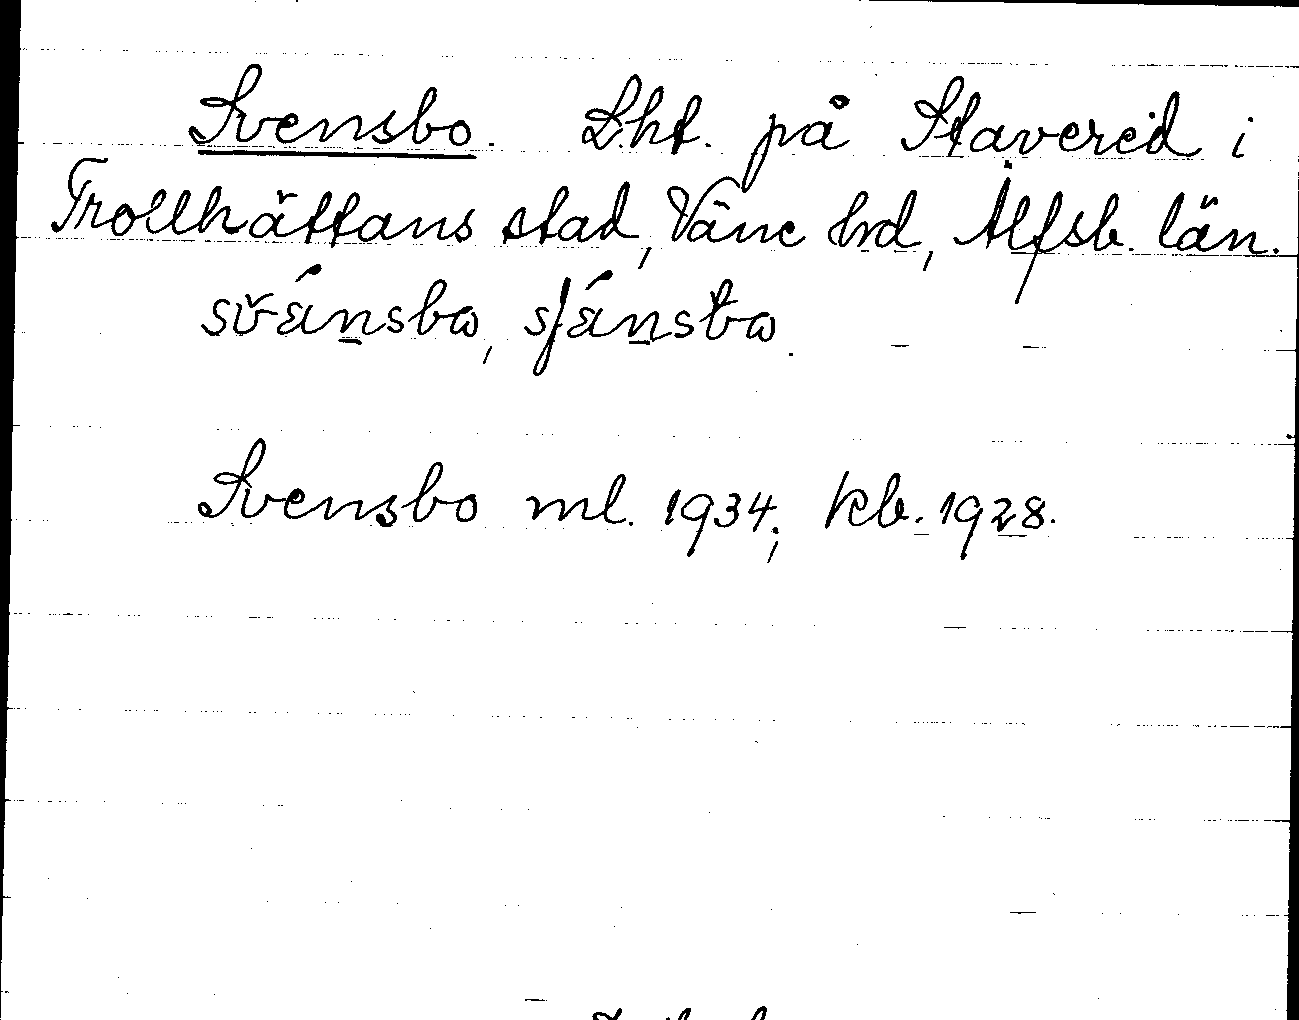 Svensbo. Lht. på Stavered i
Trollhättans stad, Väne hrd, Älfsb. län.
svä́nsbω, sfä́nsbω.
Svensbo ml. 1934; kb. 1928.